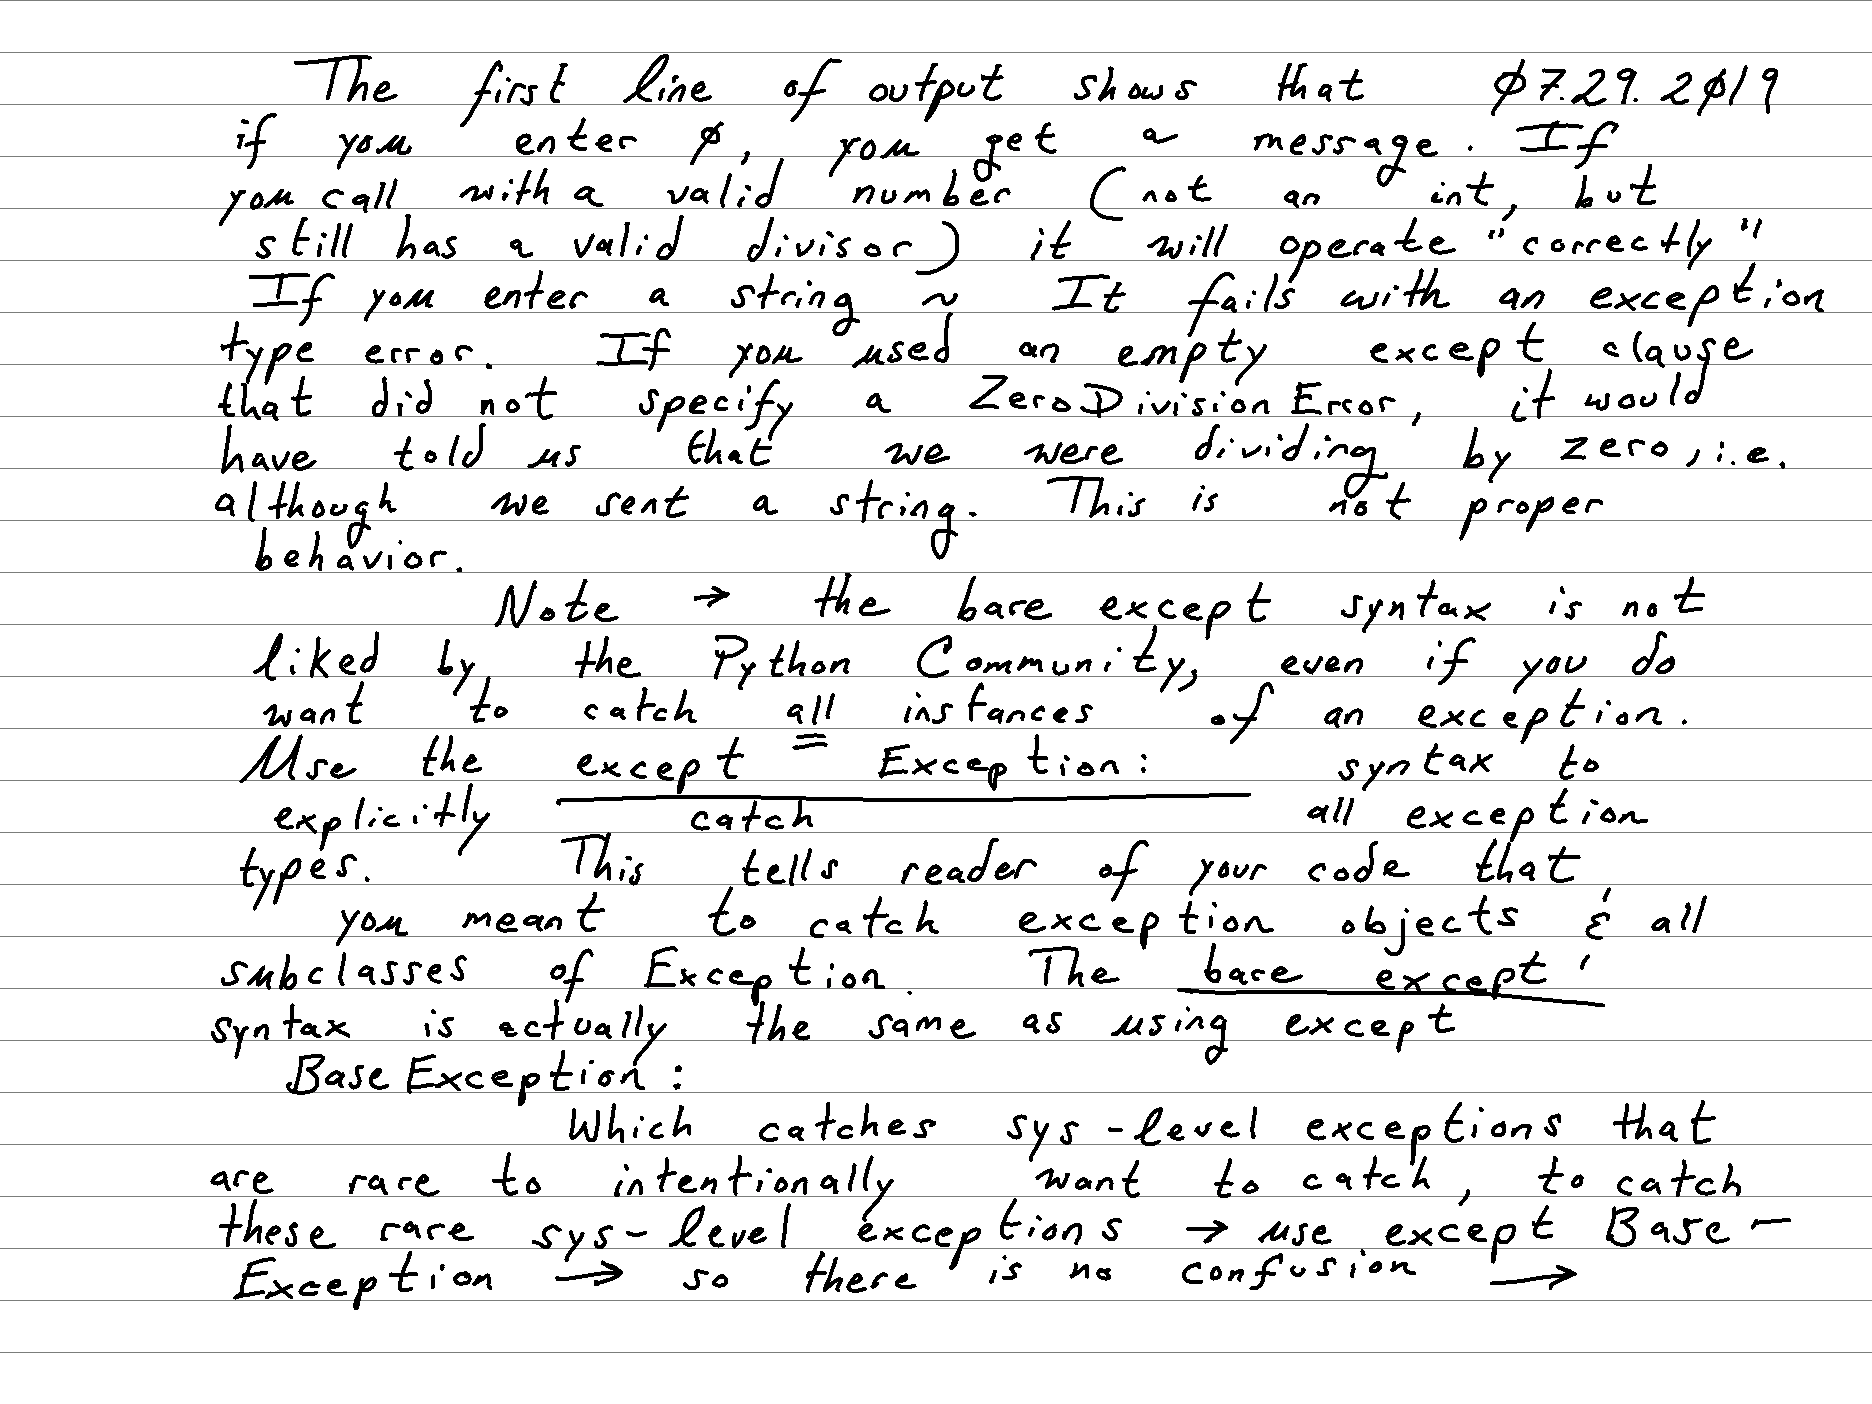 The first line of output shows that 07.29.2019
if you enter 0, you get a message. If
you call with a valid number (not an int, but
still has a valid divisor) it will operate "correctly"
If you enter a string ~ It fails with an exception
type error. If you used an empty except clause
that did not specify a ZeroDivisionError, it would
have told us that we were dividing by zero, i.e.
although we sent a string. This is not proper
behavior.
Note → the bare except syntax is not
liked by the Python Community, even if you do
want to catch all instances of an exception.
Use the except Exception: syntax to
explicitly catch all exception
types. This tells reader of your code that
you meant to catch exception objects & all
subclasses of Exception. The bare except
syntax is actually the same as using except
BaseException:
Which catches sys-level exceptions that
are rare to intentionally want to catch, to catch
these rare sys-level exceptions → use except Base-
Exception → so there is no confusion →